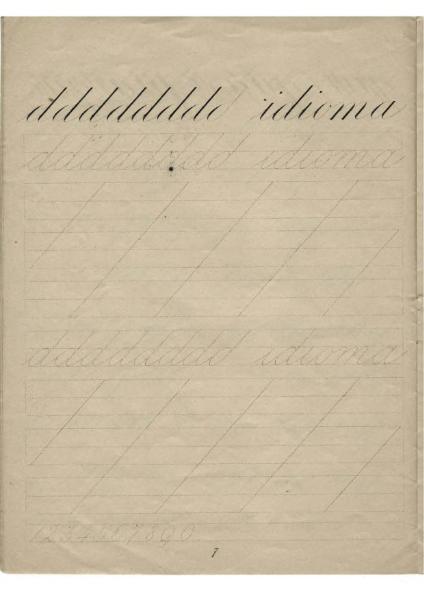 ddddddddd idioma
ddddddddd idioma
ddddddddd idioma
1 2 3 4 5 6 7 8 9 0
7